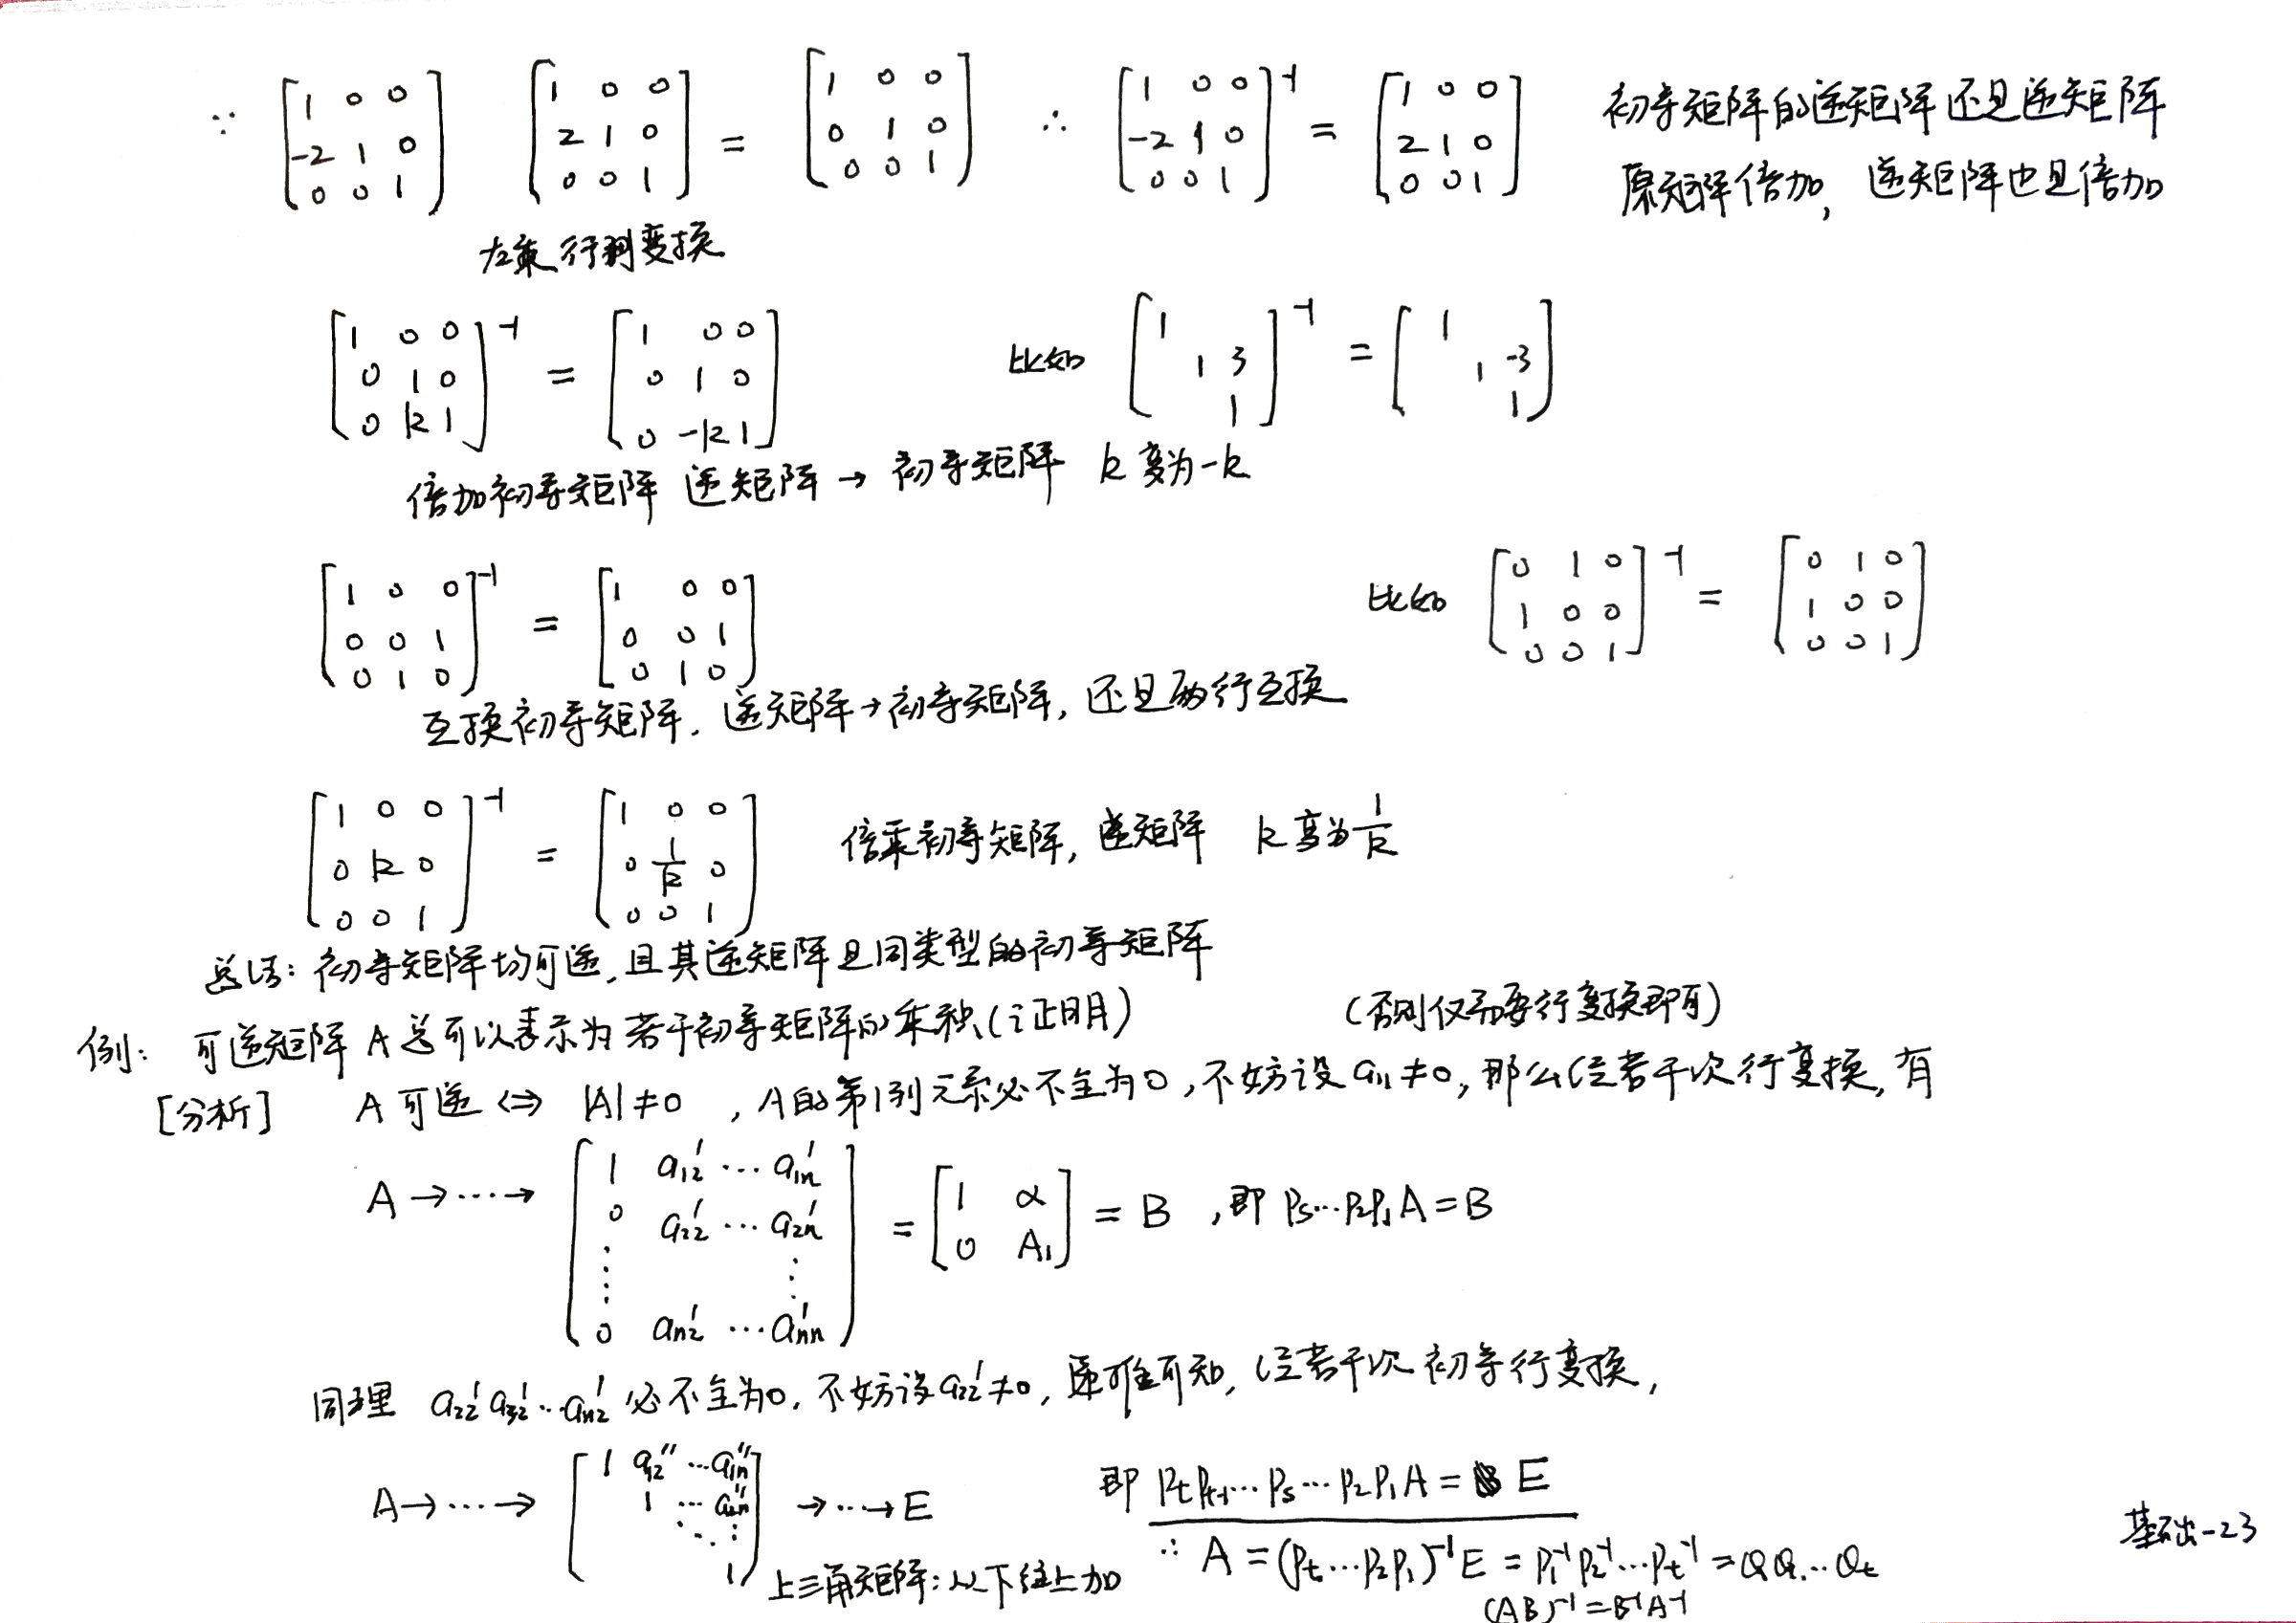 ∵ [1 0 0; -2 1 0; 0 0 1] [1 0 0; 2 1 0; 0 0 1] = [1 0 0; 0 1 0; 0 0 1] ∴ [1 0 0; -2 1 0; 0 0 1]⁻¹ = [1 0 0; 2 1 0; 0 0 1] 初等矩阵的逆矩阵还是逆矩阵
原矩阵倍加, 逆矩阵也是倍加
左乘 行 变换
[1 0 0; 0 1 0; 0 k 1]⁻¹ = [1 0 0; 0 1 0; 0 -k 1] 比如 [1; 1 3; 1]⁻¹ = [1; 1 -3; 1]
倍加初等矩阵 逆矩阵 → 初等矩阵 k变为-k
[1 0 0; 0 0 1; 0 1 0]⁻¹ = [1 0 0; 0 0 1; 0 1 0] 比如 [0 1 0; 1 0 0; 0 0 1]⁻¹ = [0 1 0; 1 0 0; 0 0 1]
互换初等矩阵, 逆矩阵→初等矩阵, 还是两行互换
[1 0 0; 0 k 0; 0 0 1]⁻¹ = [1 0 0; 0 1/k 0; 0 0 1] 倍乘初等矩阵, 逆矩阵 k变为1/k
总结: 初等矩阵均可逆, 且其逆矩阵是同类型的初等矩阵
例: 可逆矩阵A总可以表示为若干初等矩阵的乘积(证明) (否则仅需要行变换即可)
[分析] A可逆 ⇔ |A|≠0 , A的第1列元素必不全为0, 不妨设a₁₁≠0, 那么经若干次行变换, 有
A→⋯→ [1 a₁₂′ ⋯ a₁ₙ′; 0 a₂₂′ ⋯ a₂ₙ′; ⋮ ⋮; 0 aₙ₂′ ⋯ aₙₙ′] = [1 α; 0 A₁] = B , 即 Pₛ⋯P₂P₁A=B
同理 a₂₂′ a₃₂′⋯aₙ₂′ 必不全为0, 不妨设a₂₂′≠0, 类推可知, 经若干次初等行变换,
A→⋯→ [1 a₁₂″ ⋯a₁ₙ″; 1 ⋯a₂ₙ″; ⋱ ⋮; 1] →⋯→E 即 PₜPₜ₋₁⋯Pₛ⋯P₂P₁A = E
上三角矩阵: 从下往上加 ∴ A=(Pₜ⋯P₂P₁)⁻¹E = P₁⁻¹P₂⁻¹⋯Pₜ⁻¹ = Q₁Q₂⋯Qₜ
(AB)⁻¹=B⁻¹A⁻¹
基础-23